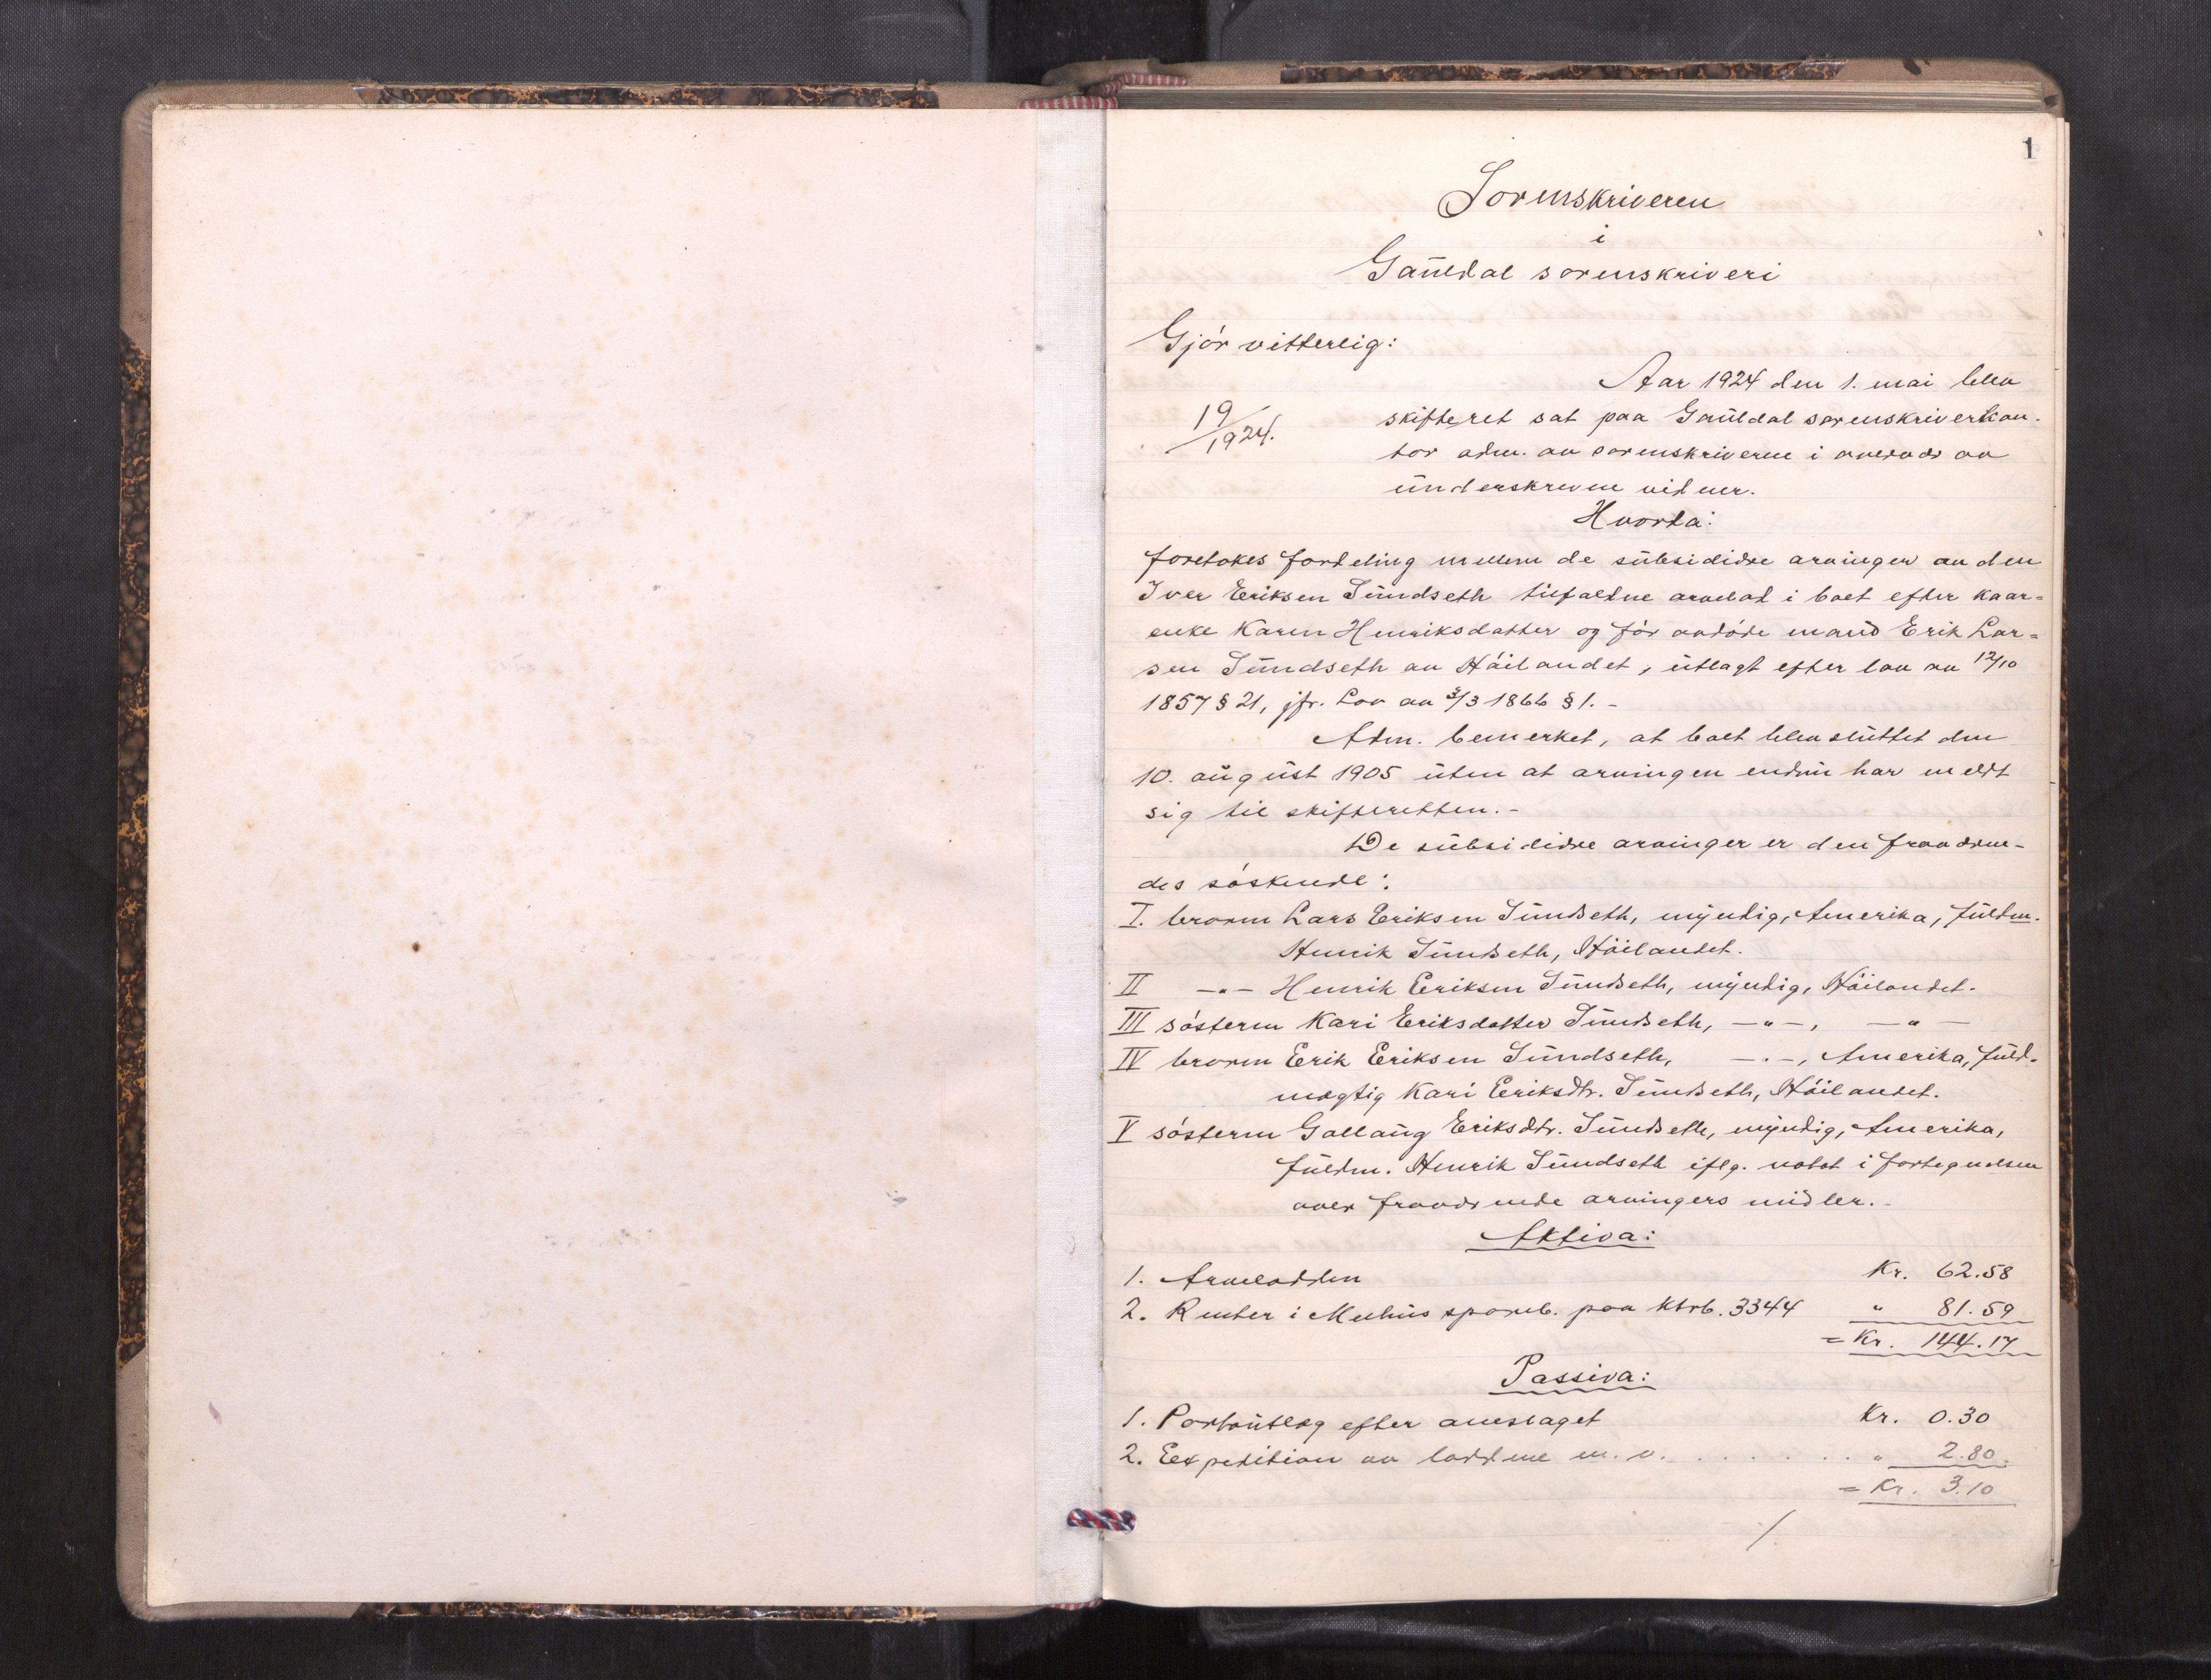 1
Sorenskriveren
i
Gauldal sorenskriveri
Gjör vitterlig:
Aar 1924 den 1. mai blev
19/1924.
skifteret sat paa Gauldal sorenskriverkon-
tor adm. av sorenskriveren i overvær av
underskrevne vidner.
Hvorda:
foretokes fordeling mellem de subsidiære arvinger av den
Iver Eriksen Sundseth tilfaldne arvelod i boet efter kaar-
enke Karen Henriksdatter og før avdøde mand Erik Lar-
sen Sundseth av Höilandet, utlagt efter lov av 12/10
1857 § 21, jfr. Lov av 3/3 1866 § 1. -
Adm. bemerket, at boet blev sluttet den
10. august 1905 uten at arvingen endnu har meldt
sig til skifteretten. -
De subsidiære arvinger er den fraværen-
des söskende:
I. broren Lars Eriksen Sundseth, myndig, Amerika, fuldm.
Henrik Sundseth, Höilandet.
II -"- Henrik Eriksen Sundseth, myndig, Höilandet.
III søsteren Kari Eriksdatter Sundseth, -"-, -"-
IV broren Erik Eriksen Sundseth, -"-, Amerika, fuld-
mægtig Kari Eriksdtr. Sundseth, Höilandet.
V søsteren Gollaug Eriksdtr. Sundseth, myndig, Amerika,
fuldm. Henrik Sundseth iflg. notat i fortegnelsen
over fraværende arvingers midler. -
Aktiva:
1. Arvelodden Kr. 62.58
2. Renter i Melhus spareb. paa ktrb. 3344 " 81.59
= Kr. 144.17
Passiva:
1. Portoutlæg efter overslaget Kr. 0.30
2. Expedition av loddene m. v. . . . . . . . " 2.80.
= Kr. 3.10
./.